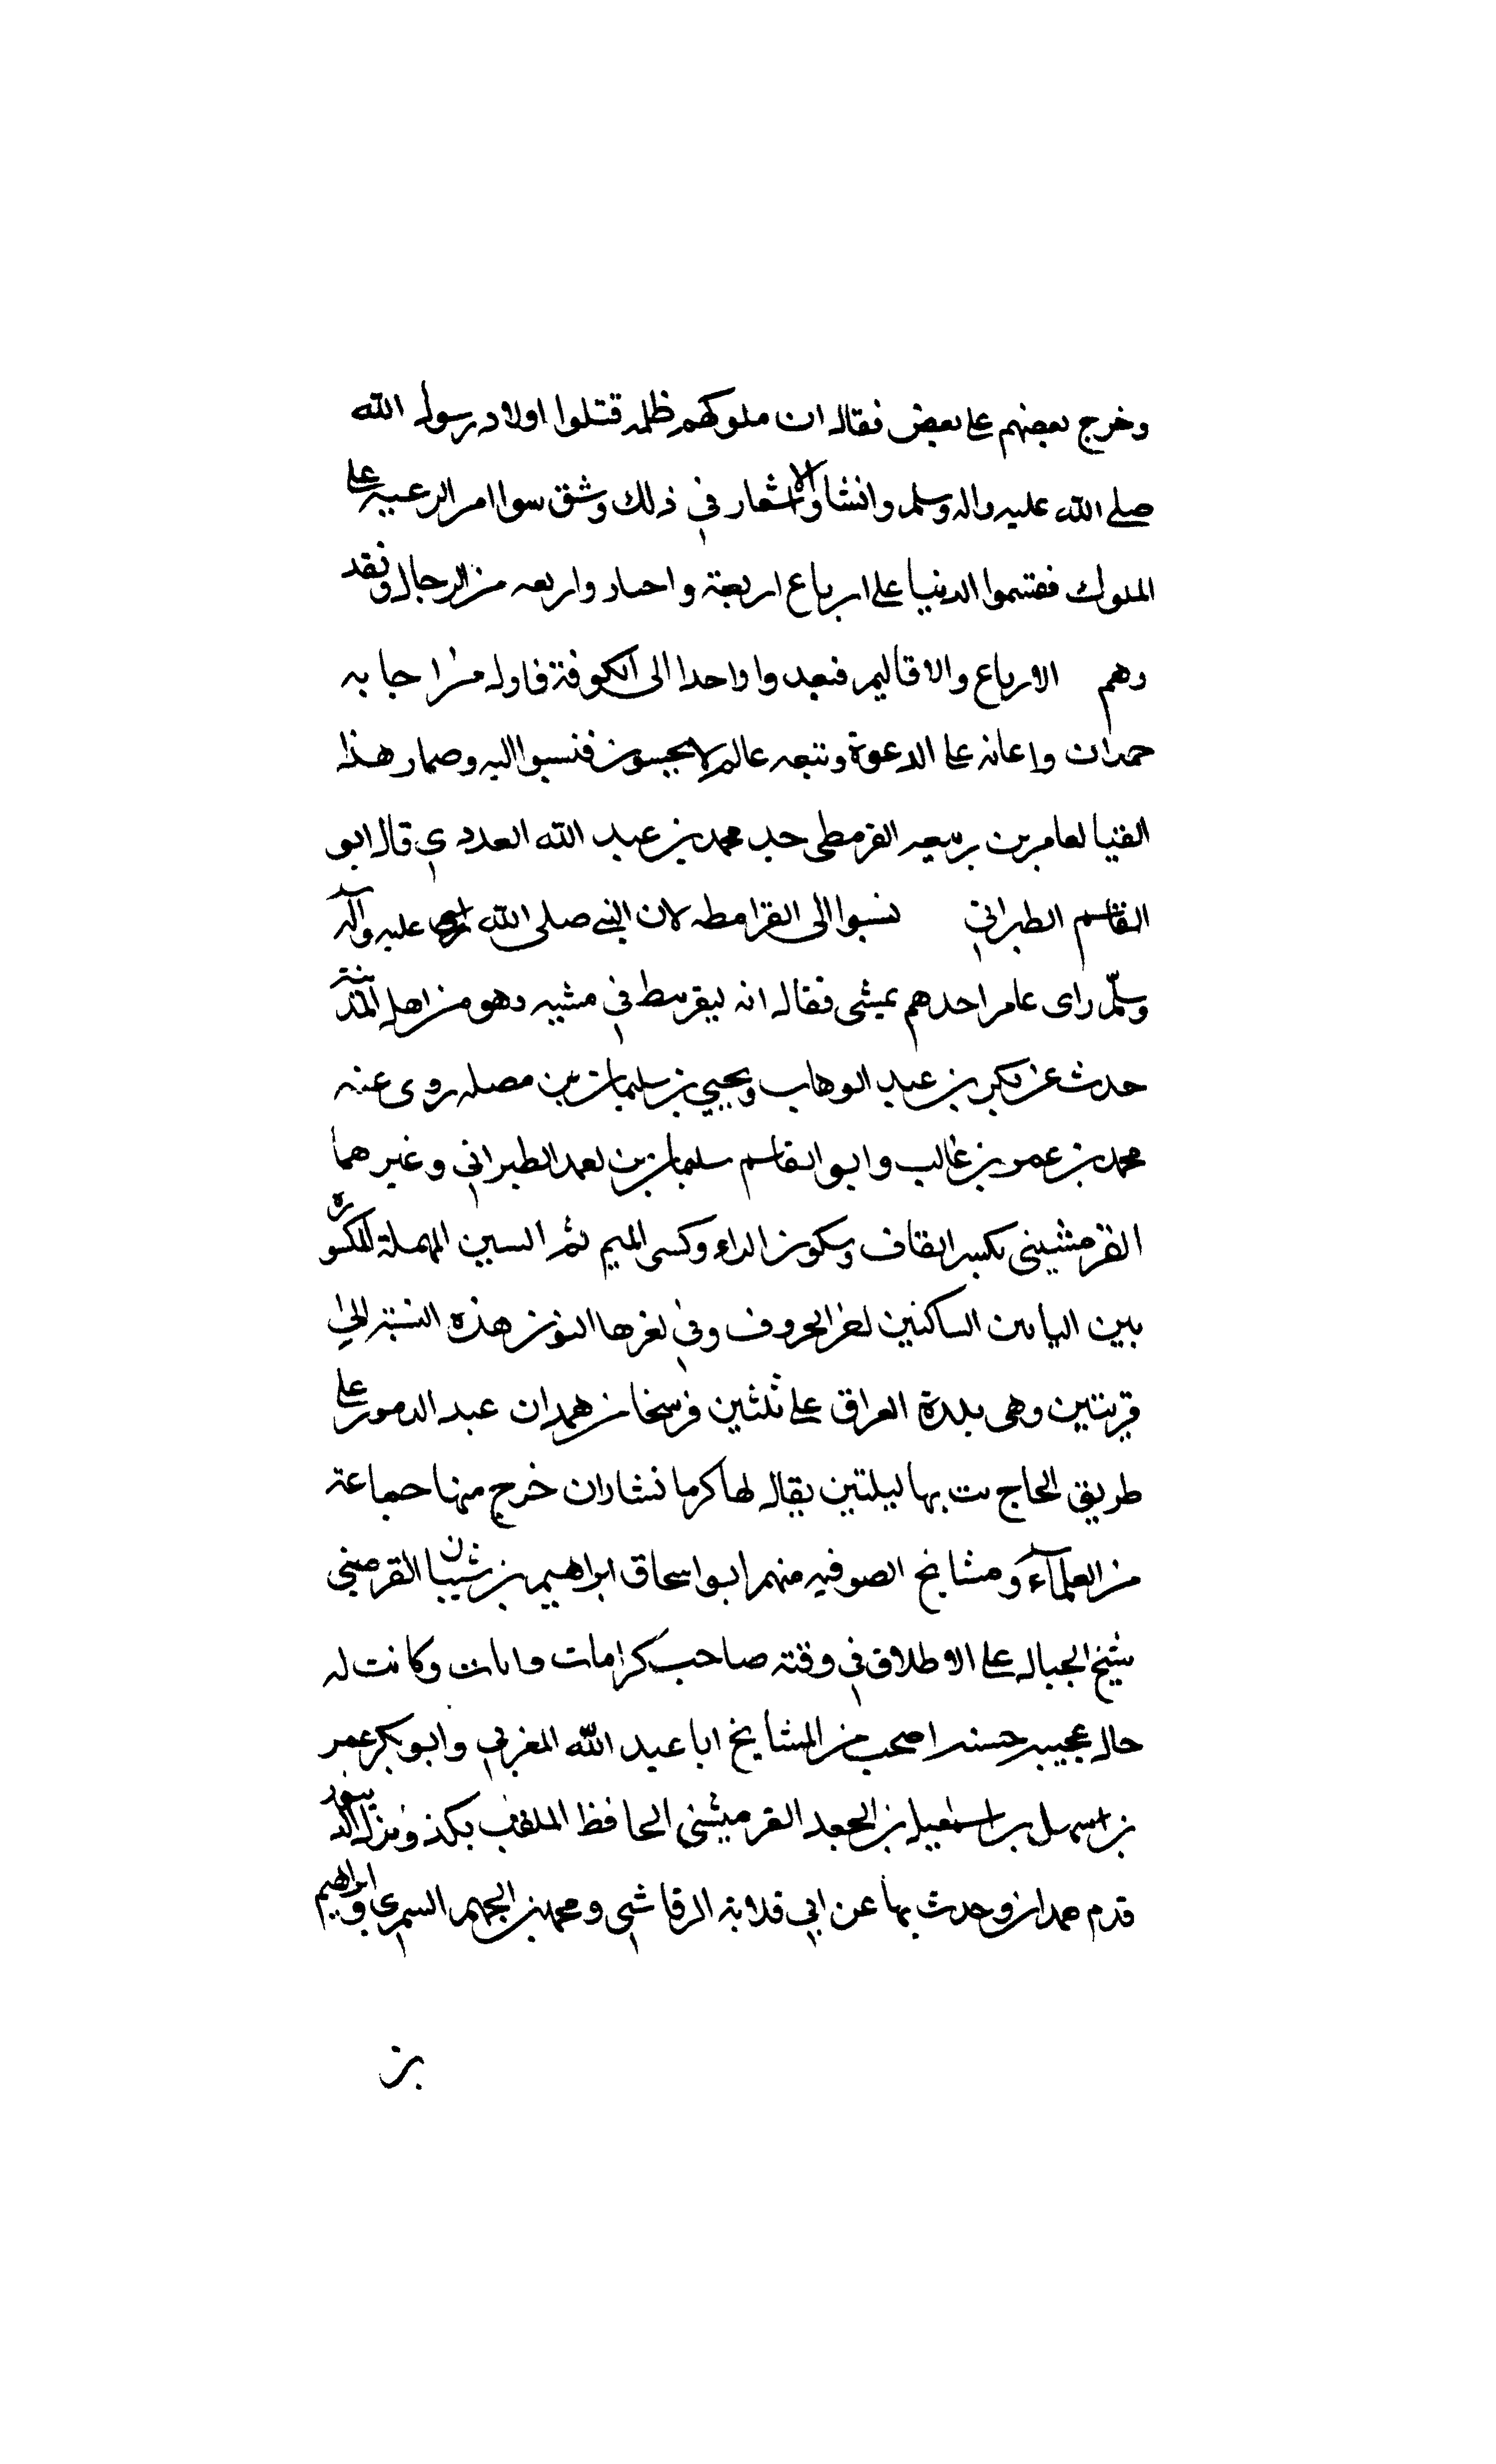 وخرج بعضهم على بعض فقال ان ملوكهم ظلمه قتلوا اولاد رسول الله
صلى الله عليه واله وسلم وانشاوالاشعار في ذلك وشق سوا امر الرعيه على
الملوك فقتسموا الدنيا على ارباع اربعة واحبار واربعه من الرجال ونقد
وهم الارباع والاقاليم فنعدوا واحدا الى الكوفة فاول من اجابه
حمدان واعانه على الدعوة وتبعه عالم لا يحسون فنسبوا اليه وصار هذا
الفتيا لعامر بن ربيعه القرمطى حد محمد بن عبد الله العددي قال ابو
القاسم الطبراني نسبوا الى القرامطه لان النبي صلى الله عليه وآله
وسلّم راى عامر احدهم يمشى فقال انه ليقرمط في مشيه وهو من اهل المدينة
حدث عن بكر بن عبد الوهاب ويحيي بن سليمان بن مصله روى عنه
محمد بن عمر بن غالب وابو القاسم سليمان بن لعمد الطبراني وغيرهما
القرمشينى بكسر القاف وسكون الراء وكسر الميم ثم السين المهملة المكسوره
بين اليامين الساكنين لخر الحروف وفي لغرها النون هذه النسبة الى
قرينتين وهى بلدة العراق على ثلثين فرسخا من همدان عبد الدمور على
طريق الحاج بت بها ليلتين يقال لها كرمانشاران خرج منها جماعة
من العلمآء ومشايخ الصوفيه منهم ابو اسحاق ابراهيم بن شيبان القرميني
شيخ الجبال على الاطلاق في وقته صاحب كرامات وايات وكانت له
حال عجيبه حسنه اصحب من المشايخ ابا عبد الله المغربي وابو بكر عمر
بن اسهل بن اسمعيل بن الجعد القرميشنى الحافظ الملقب بكذو نزل الدينور
قدم همدان وحدث بها عن ابي قلابة الرقاشي ومحمد بن الجهم السمري وابراهيم
بن